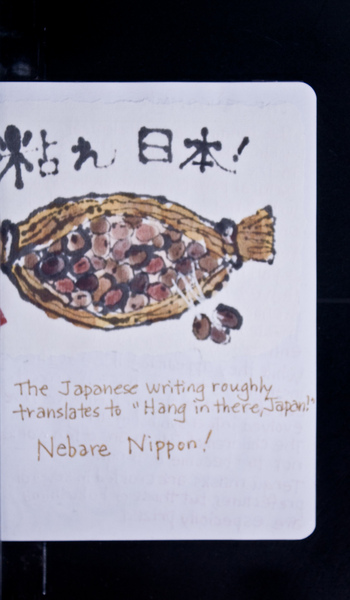 粘れ 日本!
The Japanese writing roughly
translates to "Hang in there, Japan!"
Nebare Nippon!